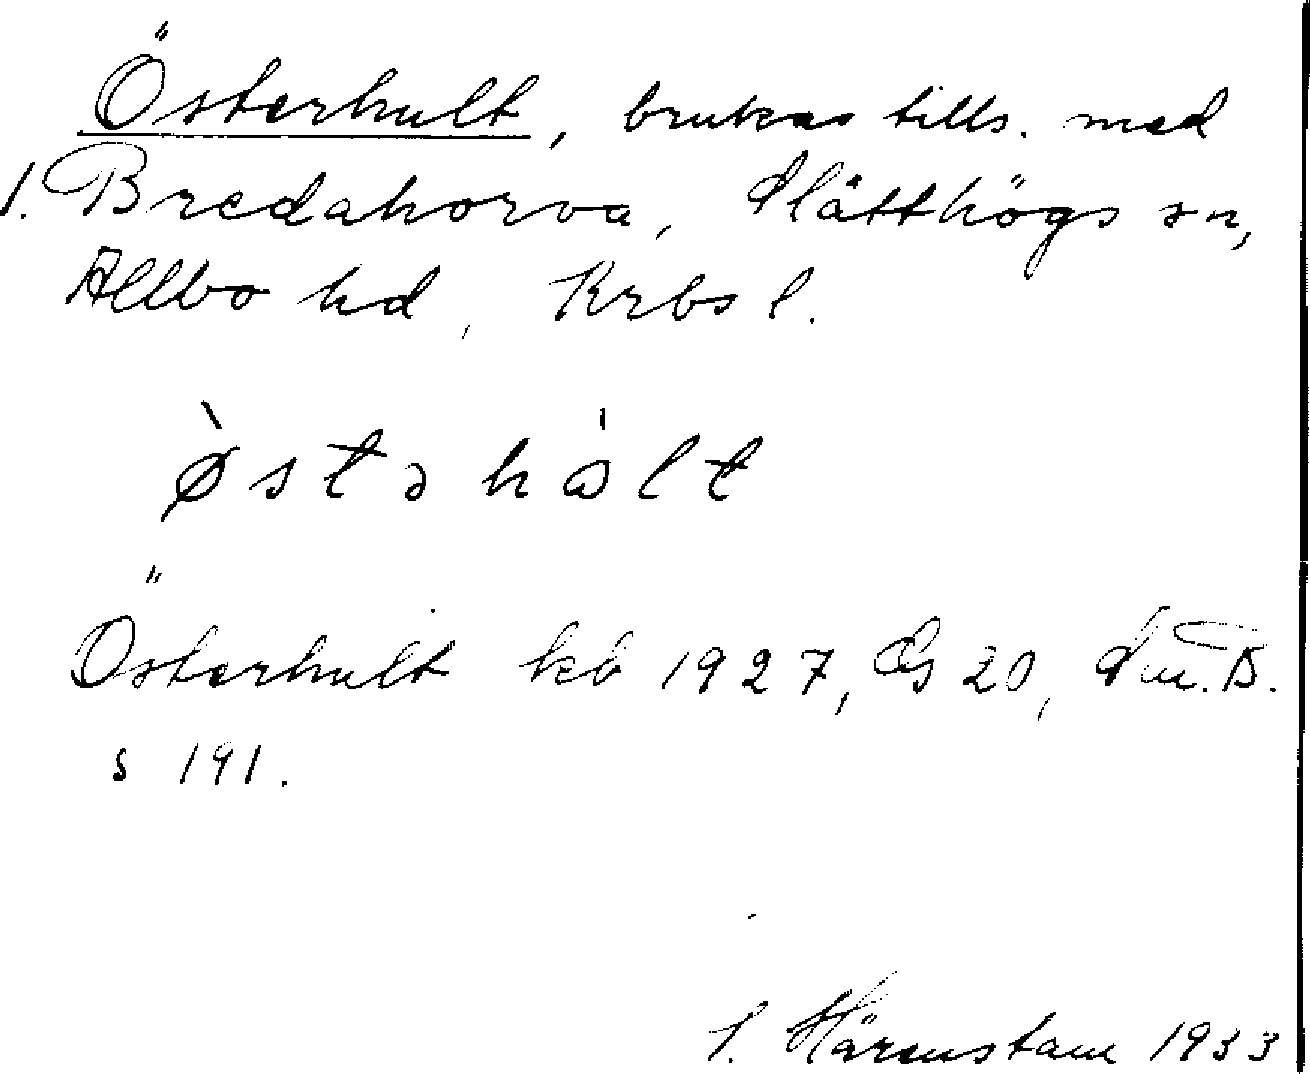 Österhult, brukas tills. med
1. Bredahorva, Slätthögs sn,
Allbo hd, Krbs l.
ø̀stəhàlt
Österhult kb 1927, 20,
s 191.
S. Härenstam 1933